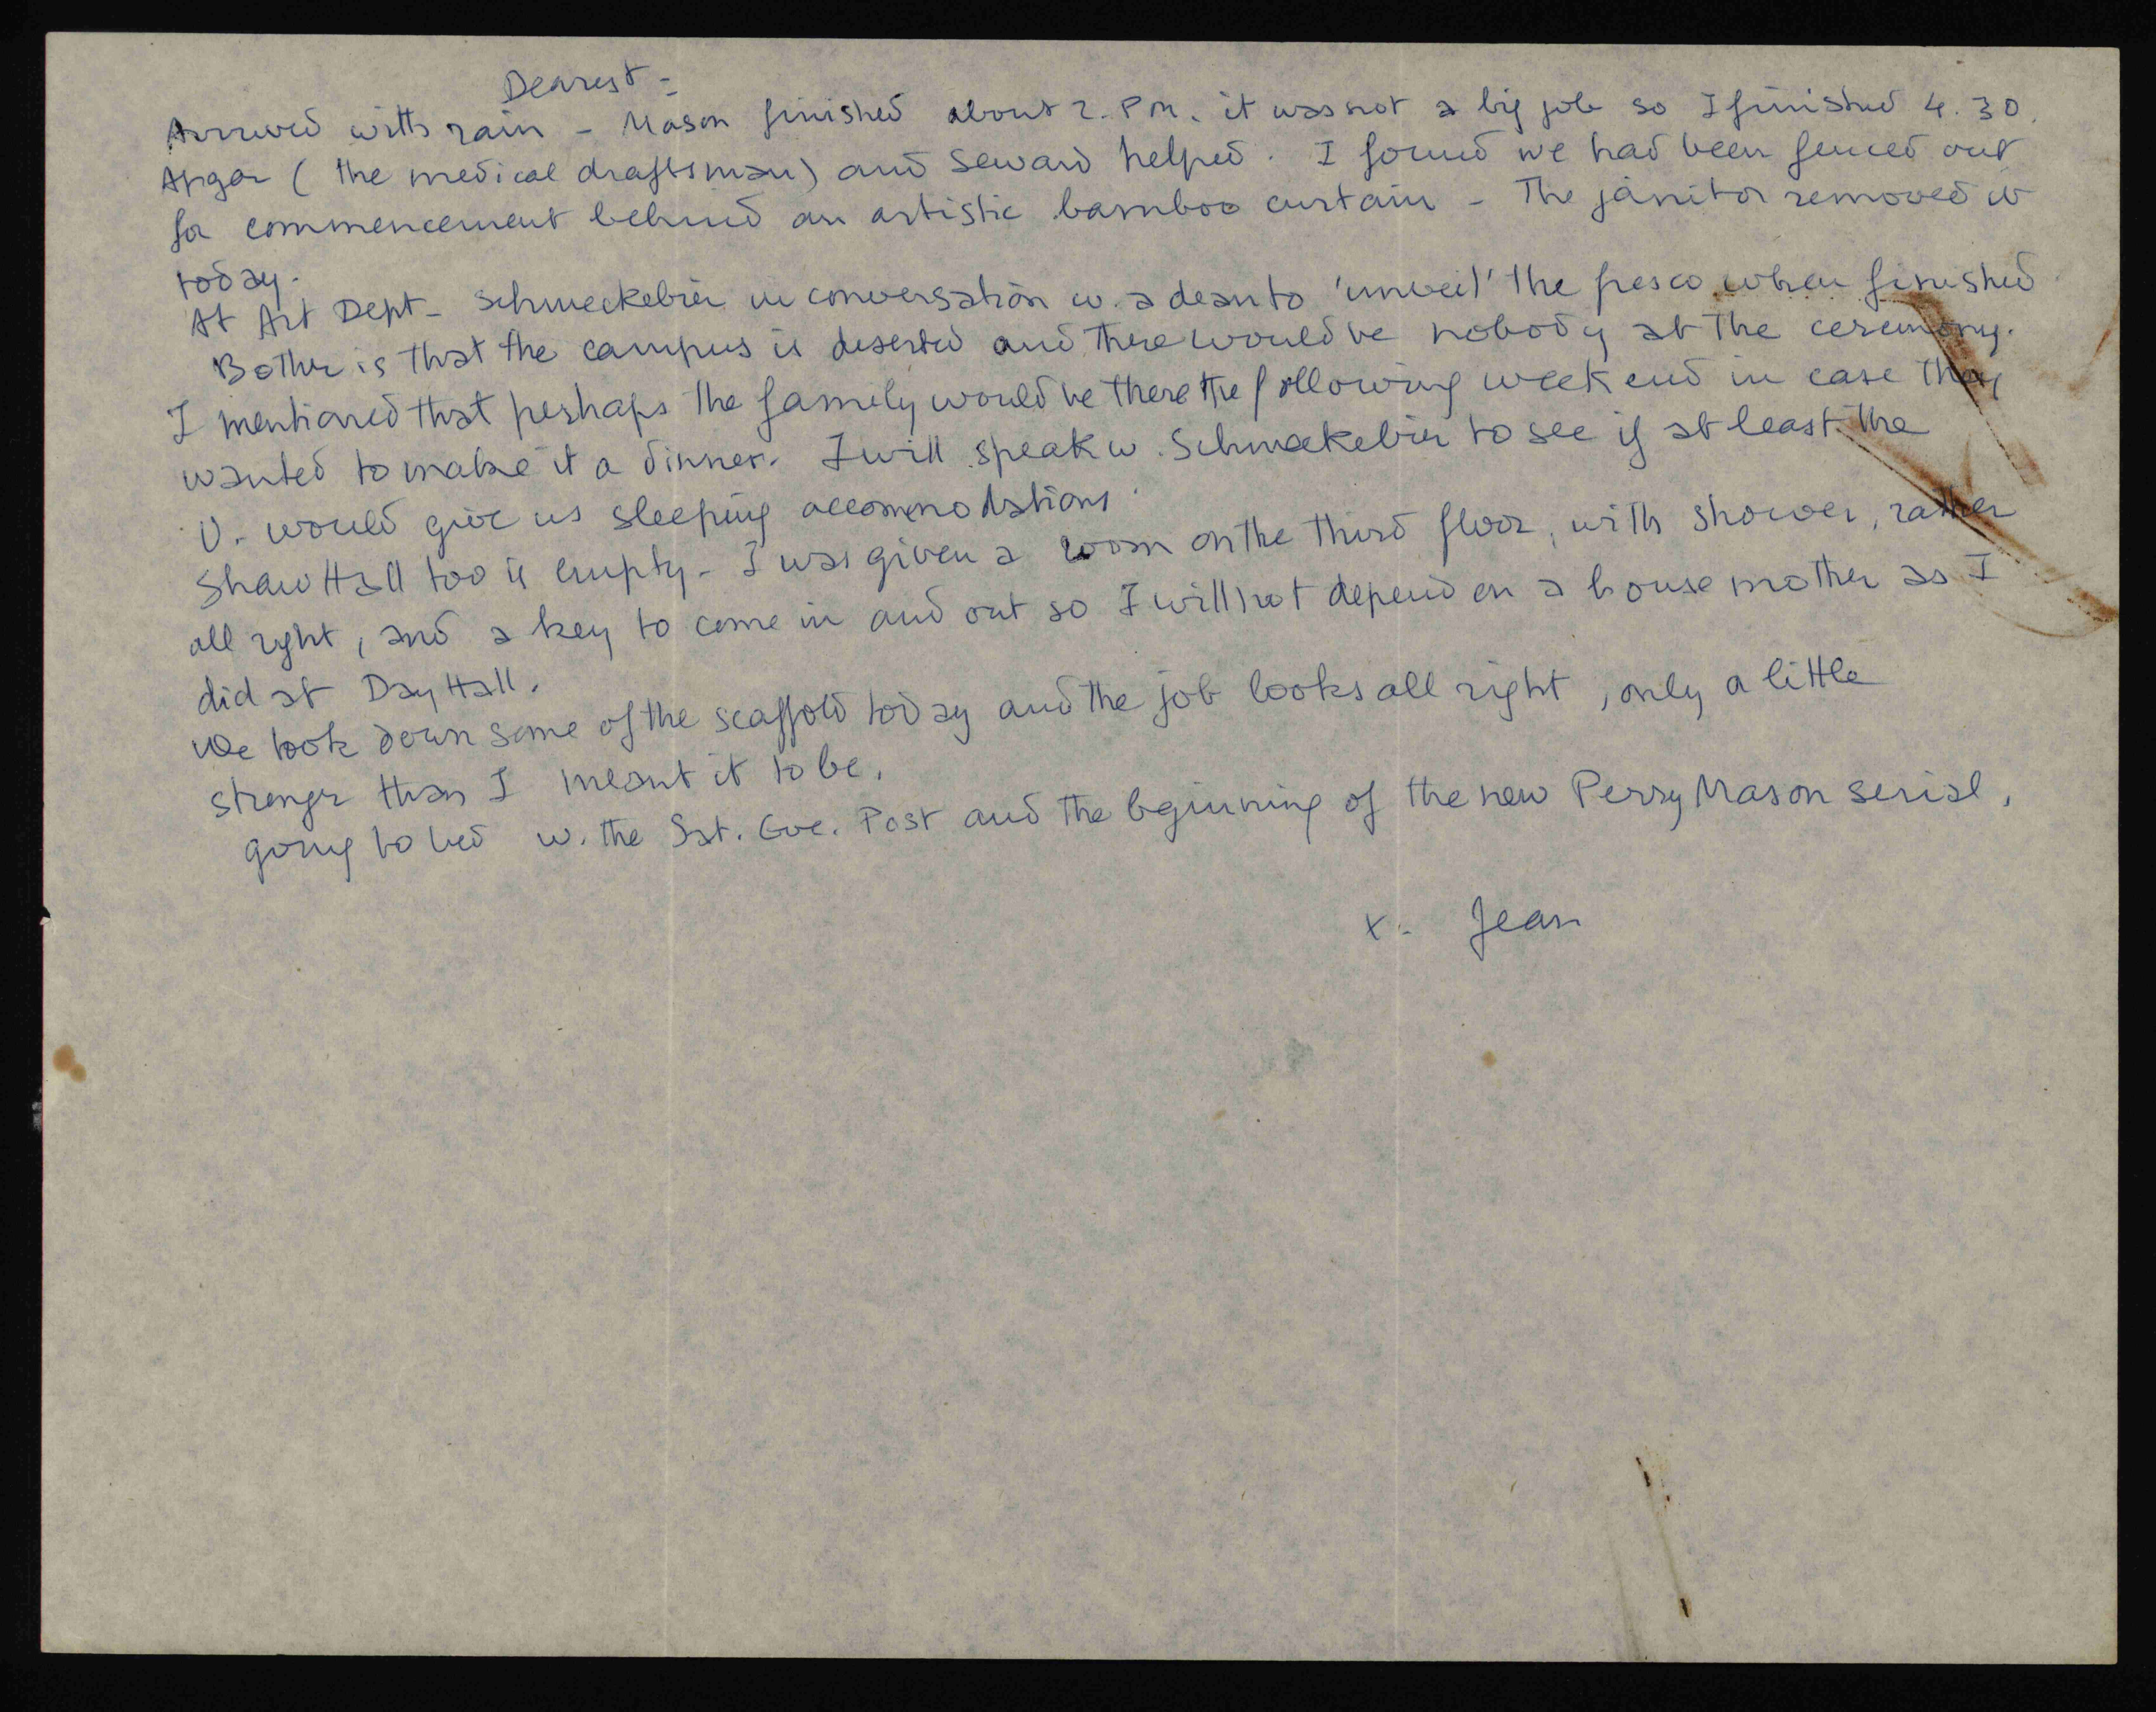 Dearest -
Arrived with rain - Mason finished about 2. PM. it was not a big job so I finished 4.30.
Apgar ( the medical draftsman) and Seward helped. I found we had been fenced out
for commencement behind an artistic bamboo curtain - The janitor removed it
today.
At Art Dept - Schmeckebier in conversation w. a dean to 'unveil' the fresco when finished
Bother is that the campus is deserted and there would be nobody at the ceremony.
I mentioned that perhaps the family would be there the following week end in case they
wanted to make it a dinner. I will speak w. Schmeckebier to see if at least the
U. would give us sleeping accommodations.
Shaw Hall too is empty - I was given a room on the third floor, with shower, rather
all right, and a key to come in and out so I will not depend on a house mother as I
did at Day Hall.
We took down some of the scaffold today and the job looks all right, only a little
stronger than I meant it to be.
going to bed w. the Sat. Eve. Post and the beginning of the new Perry Mason serial.
x. Jean